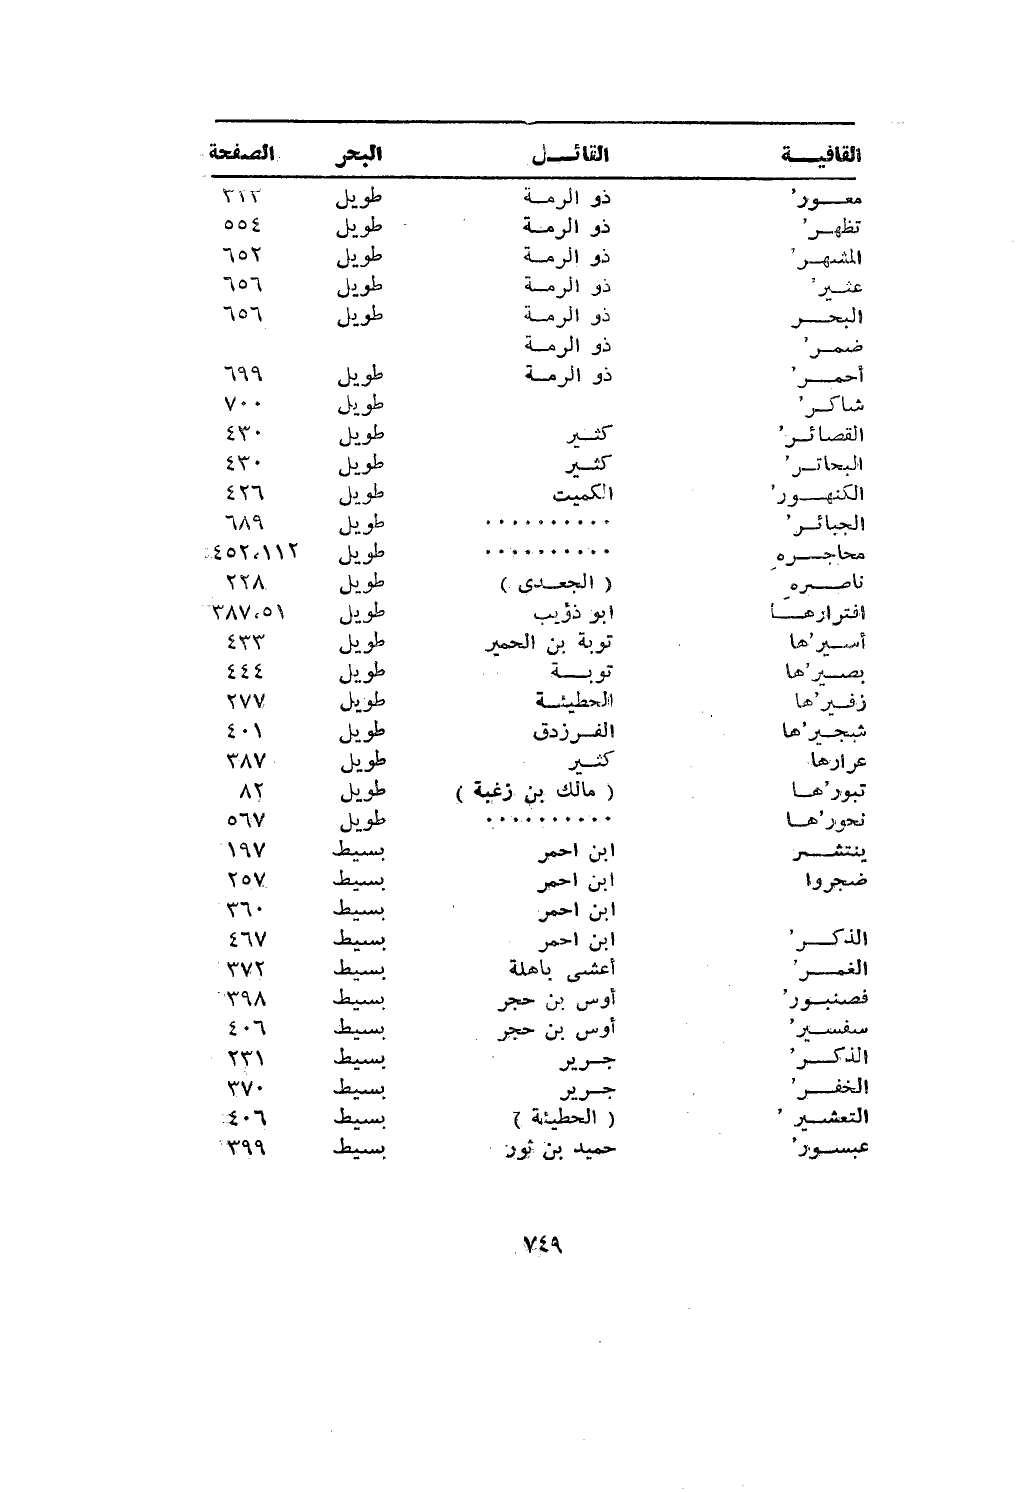 القافيــة القائــل البحر الصفحة
معــور' ذو الرمة طويل ٣١٢
تظهر' ذو الرمة طويل ٥٥٤
المشهر' ذو الرمة طويل ٦٥٢
عثير' ذو الرمة طويل ٦٥٦
البحر ذو الرمة طويل ٦٥٦
ضمر' ذو الرمة
أحمر' ذو الرمة طويل ٦٩٩
شاكر' طويل ٧٠٠
القصائر' كثير طويل ٤٣٠
البحاتر' كثير طويل ٤٣٠
الكنهور' الكميت طويل ٤٢٦
الجبائر' .......... طويل ٦٨٩
محاجره .......... طويل ٤٥٢،١١٢
ناصره ( الجعدى ) طويل ٢٢٨
افترارها ابو ذؤيب طويل ٣٨٧،٥١
أسير'ها توبة بن الحمير طويل ٤٣٣
بصير'ها توبة طويل ٤٤٤
زفير'ها الحطيئة طويل ٢٧٧
شجير'ها الفرزدق طويل ٤٠١
عرارها كثير طويل ٣٨٧
تبور'ها ( مالك بن زغبة ) طويل ٨٢
نحور'ها .......... طويل ٥٦٧
ينتشر ابن احمر بسيط ١٩٧
ضجروا ابن احمر بسيط ٢٥٧
ابن احمر بسيط ٣٦٠
الذكر' ابن احمر بسيط ٤٦٧
الغمر' أعشى باهلة بسيط ٣٧٢
فصنبور' أوس بن حجر بسيط ٣٩٨
سفسير' أوس بن حجر بسيط ٤٠٦
الذكر' جرير بسيط ٢٣١
الخفر' جرير بسيط ٣٧٠
التعشير ' ( الحطيئة ) بسيط ٤٠٦
عبسور' حميد بن ثور بسيط ٣٩٩
٧٤٩